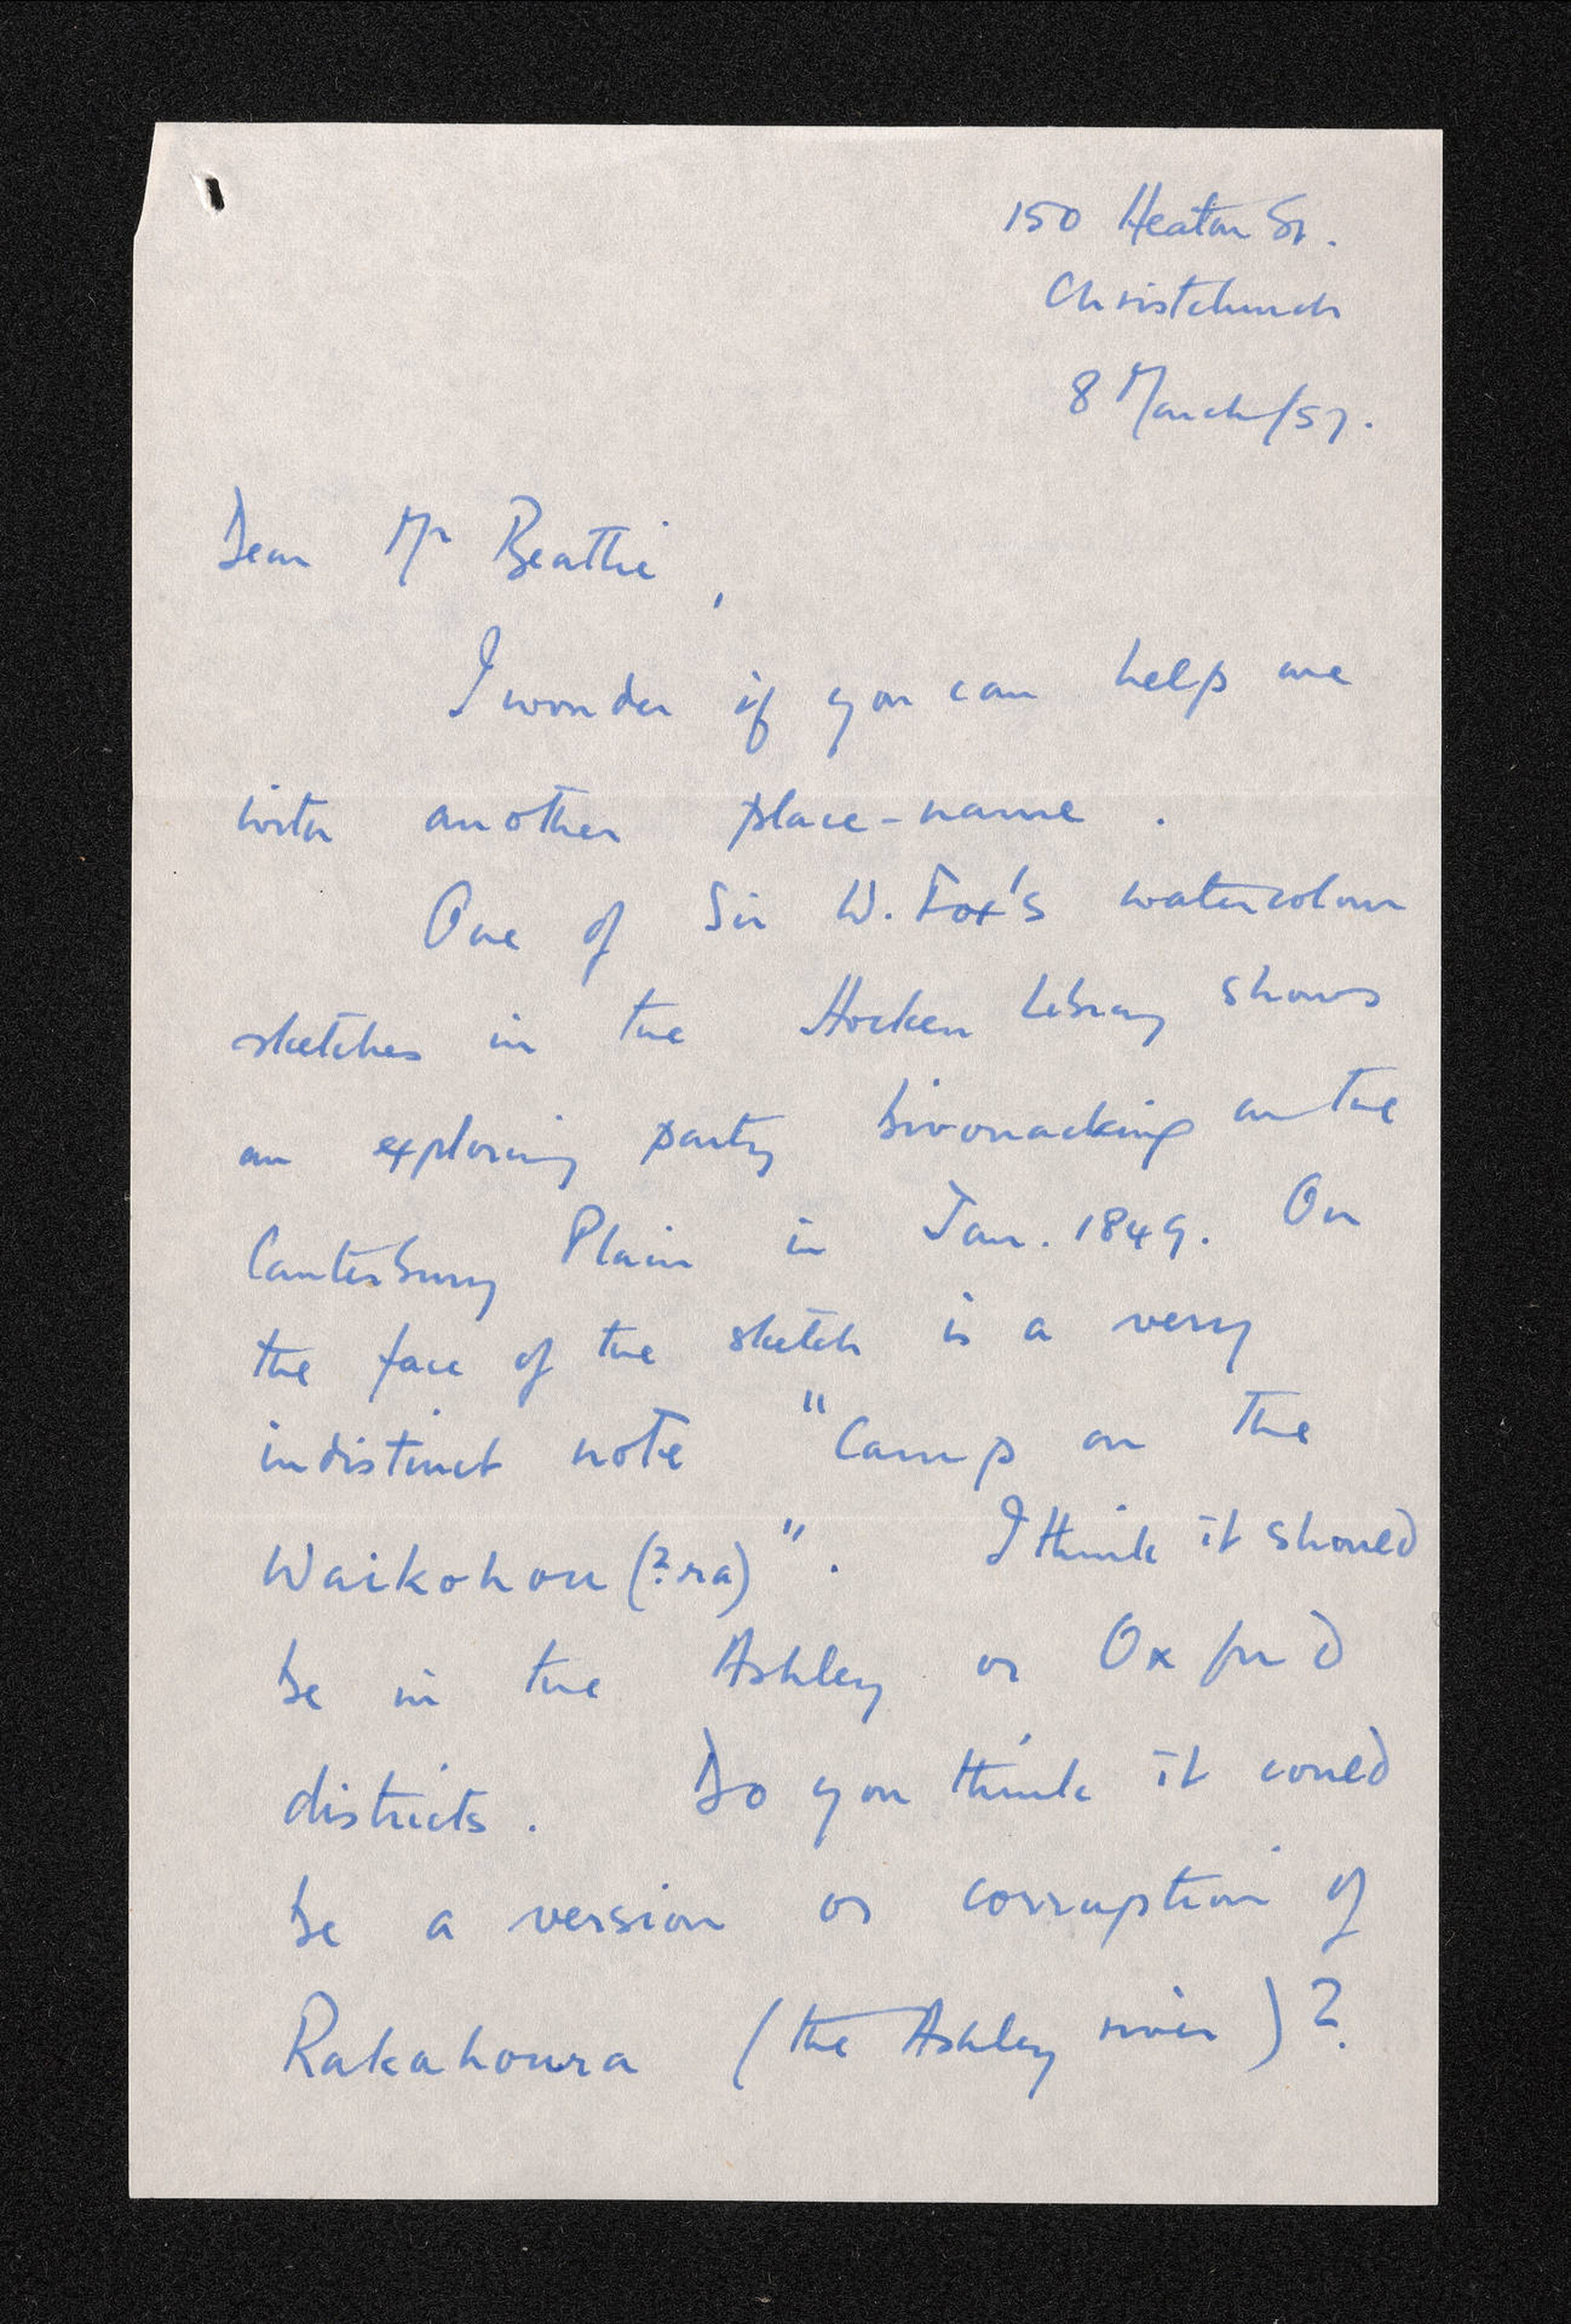 150 Heaton St.
Christchurch
8 March/57.
Dear Mr Beattie,
I wonder if you can help me
with another place-name.
One of Sir W. Fox's watercolour
sketches in the Hocken Library shows
an exploring party bivouacking on the
Canterbury Plain in Jan. 1849. On
the face of the sketch is a very
indistinct note "Camp on the
Waikohou (?ra)". I think it should
be in the Ashley or Oxford
districts. Do you think it could
be a version or corruption of
Rakahoura (the Ashley river)?